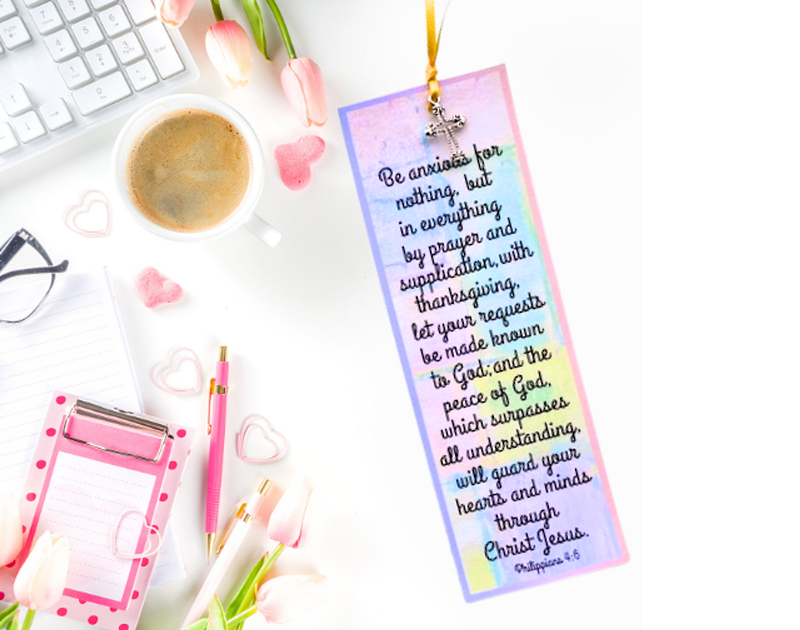 Be anxious for
nothing, but
in everything
by prayer and
supplication, with
thanksgiving,
let your requests
be made known
to God; and the
peace of God,
which surpasses
all understanding,
will guard your
hearts and minds
through
Christ Jesus.
Philippians 4:6